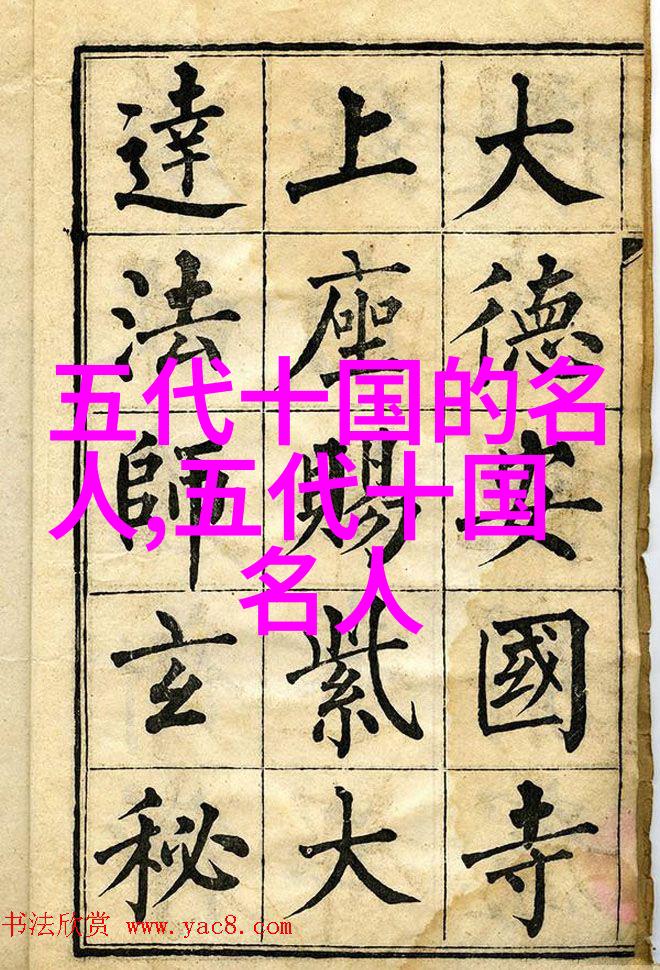 大德安國寺
上座賜紫大
達法師玄秘
五代十国的名
人,五代十国
名人
书法欣赏 www.yac8.com